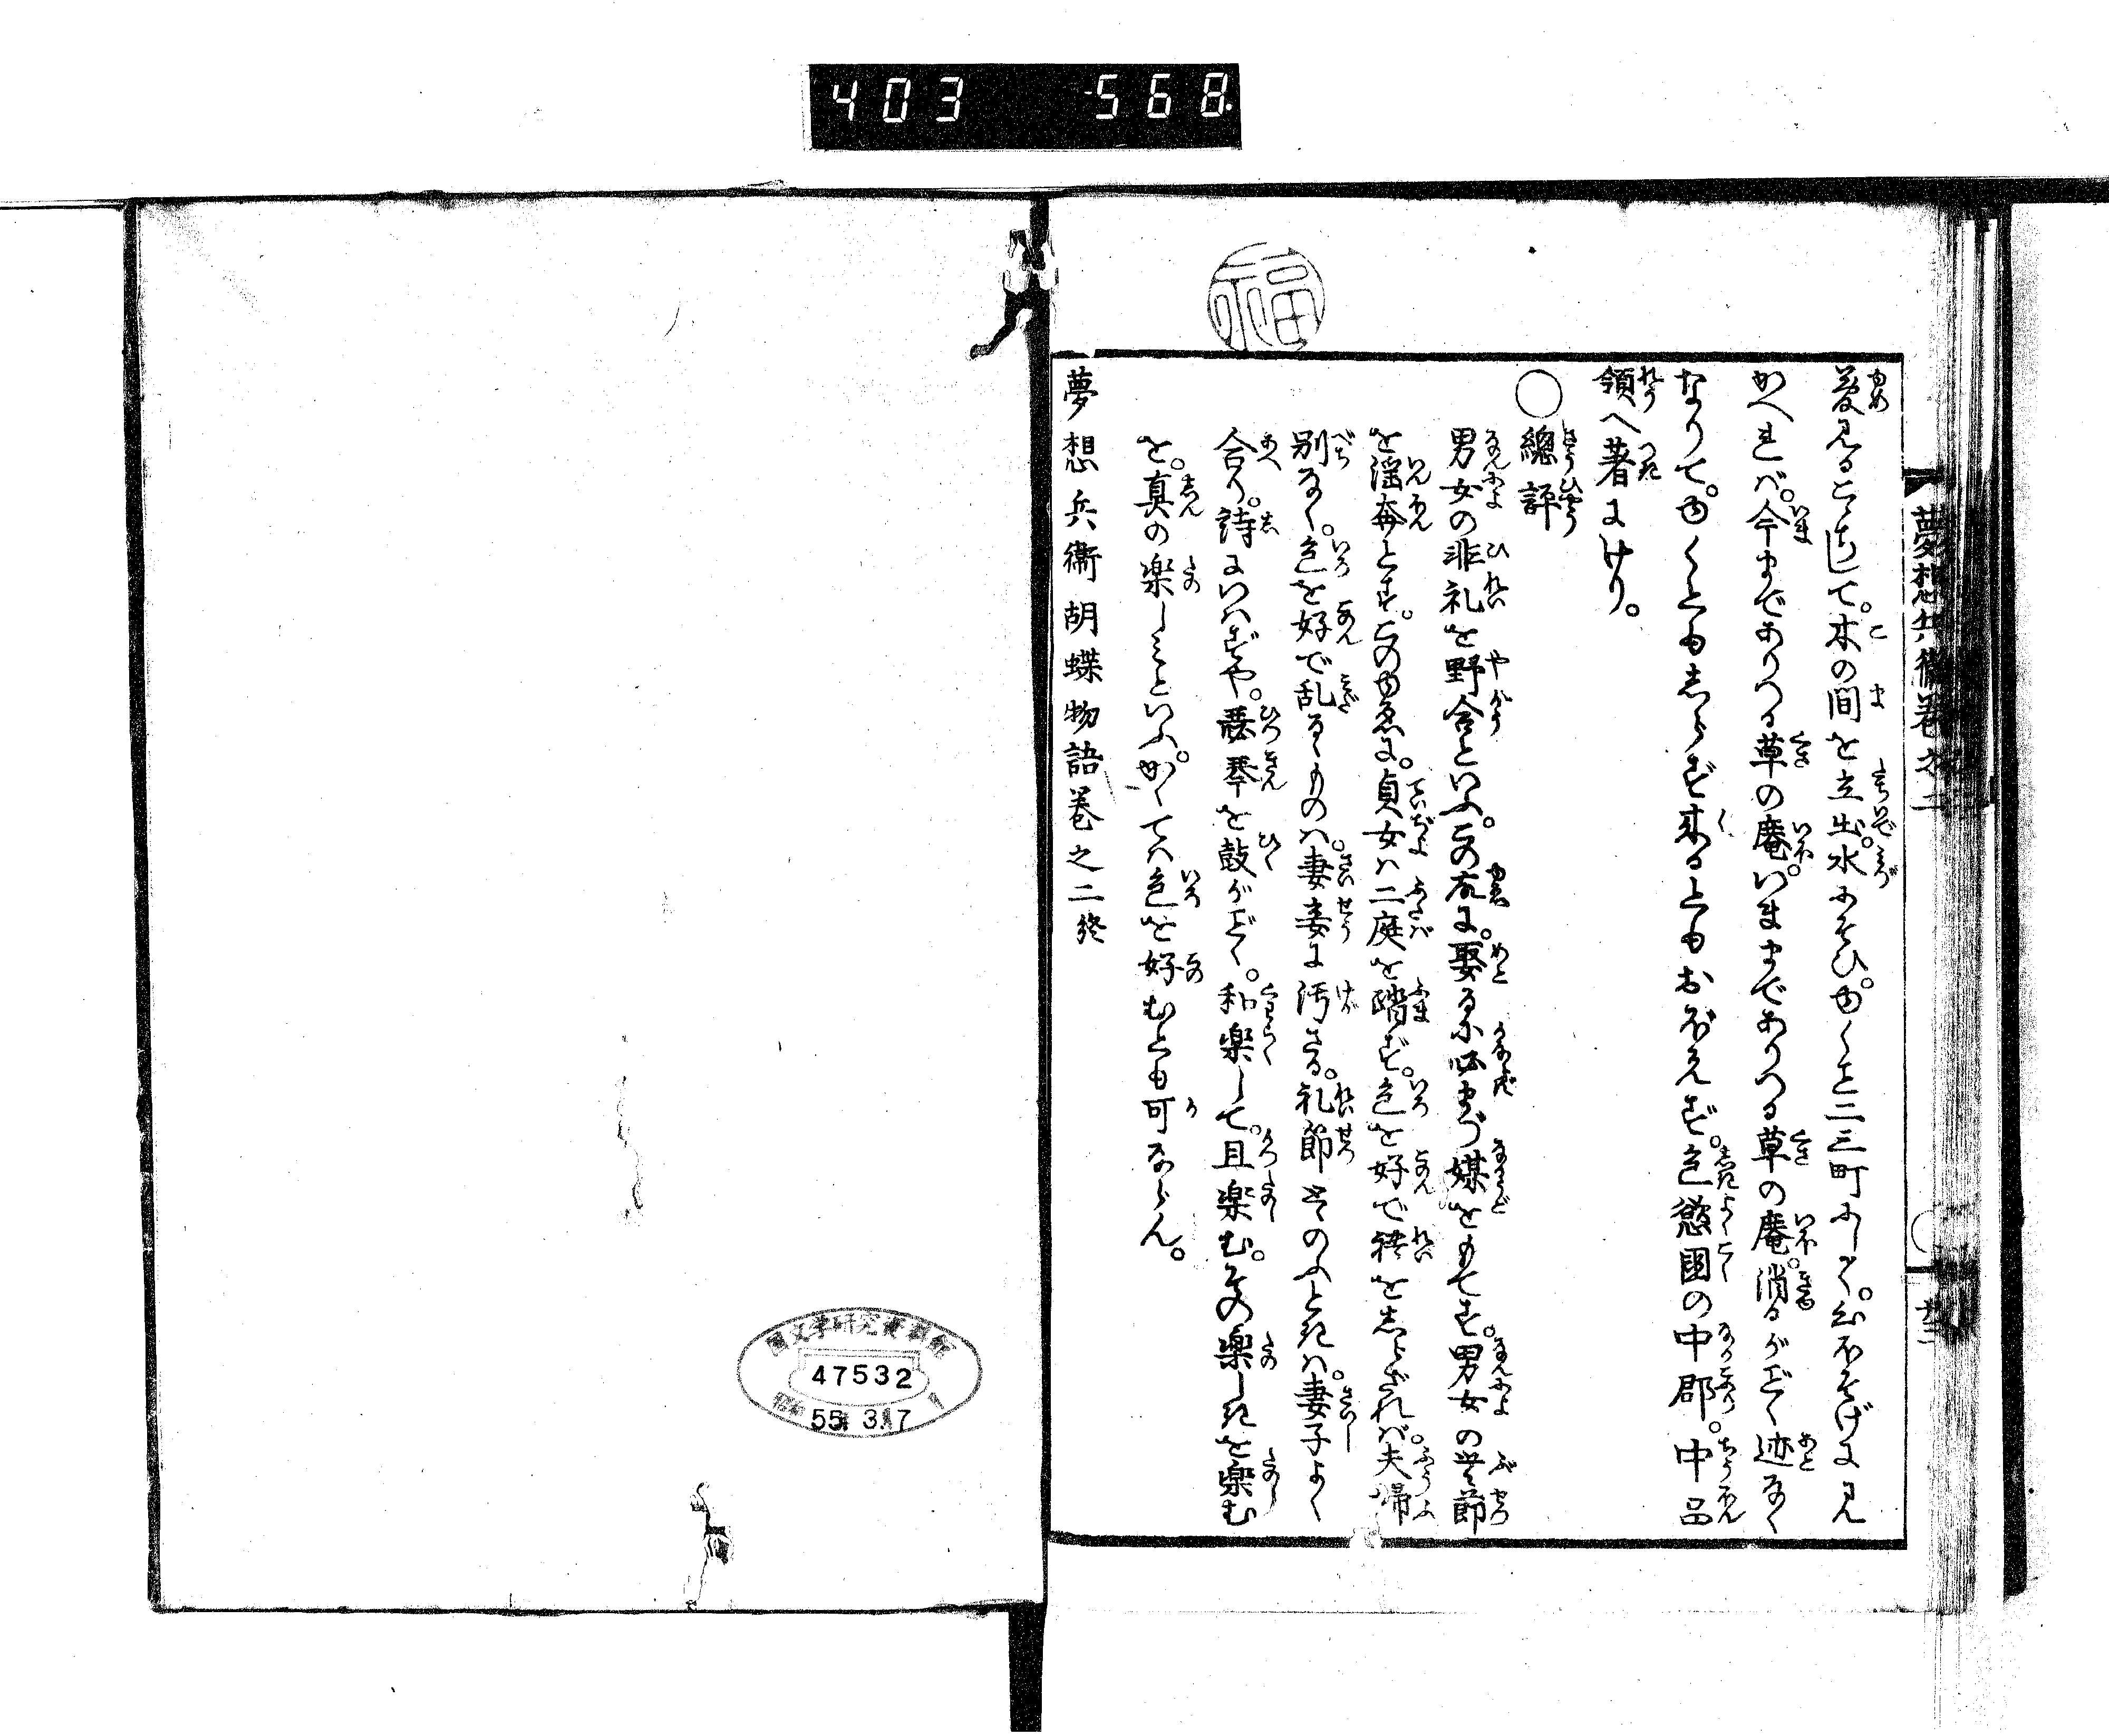 403 568
福
夢見るこゝちして。木の間を立出。水にそひ。ゆくと二三町にして。かへり見
かへれバ。今までありつる草の庵。いままでありつる草の庵。消るがごとく迹なく
なりて。ゆくともしらず来るともおぼえず。色慾国の中郡。中品
領へ著にけり。
○總評
男女の非礼を野合といふ。この故に。娶るに必まづ媒をもてす。男女の無節
を淫奔とす。このゆゑに。貞女ハ二庭を踏ず。色を好で礼をしらざれバ。夫婦
別なく。色を好で乱るゝものハ。妻妾に汚さる。礼節そのふときハ。妻子よく
合り。詩にいハずや。瑟琴を鼓がごとく。和楽して。且楽む。その楽しきを楽む
を。真の楽しミといふ。かくてハ色を好むとも可ならん。
夢想兵衞胡蝶物語巻之二終
夢想兵衛巻之二
国文学研究資料館
47532
昭和55年3月7日